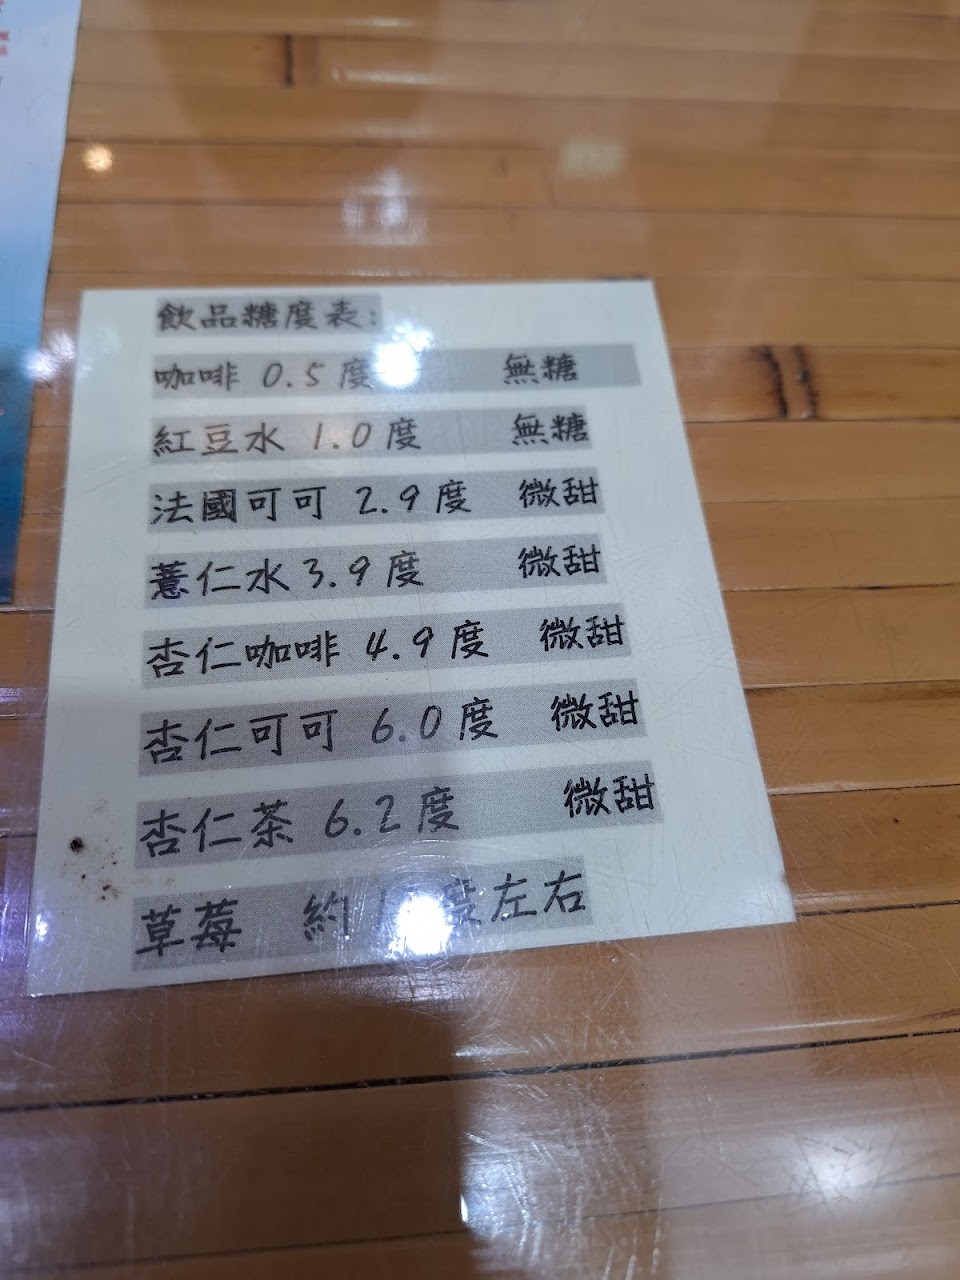 飲品糖度表:
咖啡 0.5 度 無糖
紅豆水 1.0 度 無糖
法國可可 2.9 度 微甜
薏仁水 3.9 度 微甜
杏仁咖啡 4.9 度 微甜
杏仁可可 6.0 度 微甜
杏仁茶 6.2 度 微甜
草莓 約 度左右